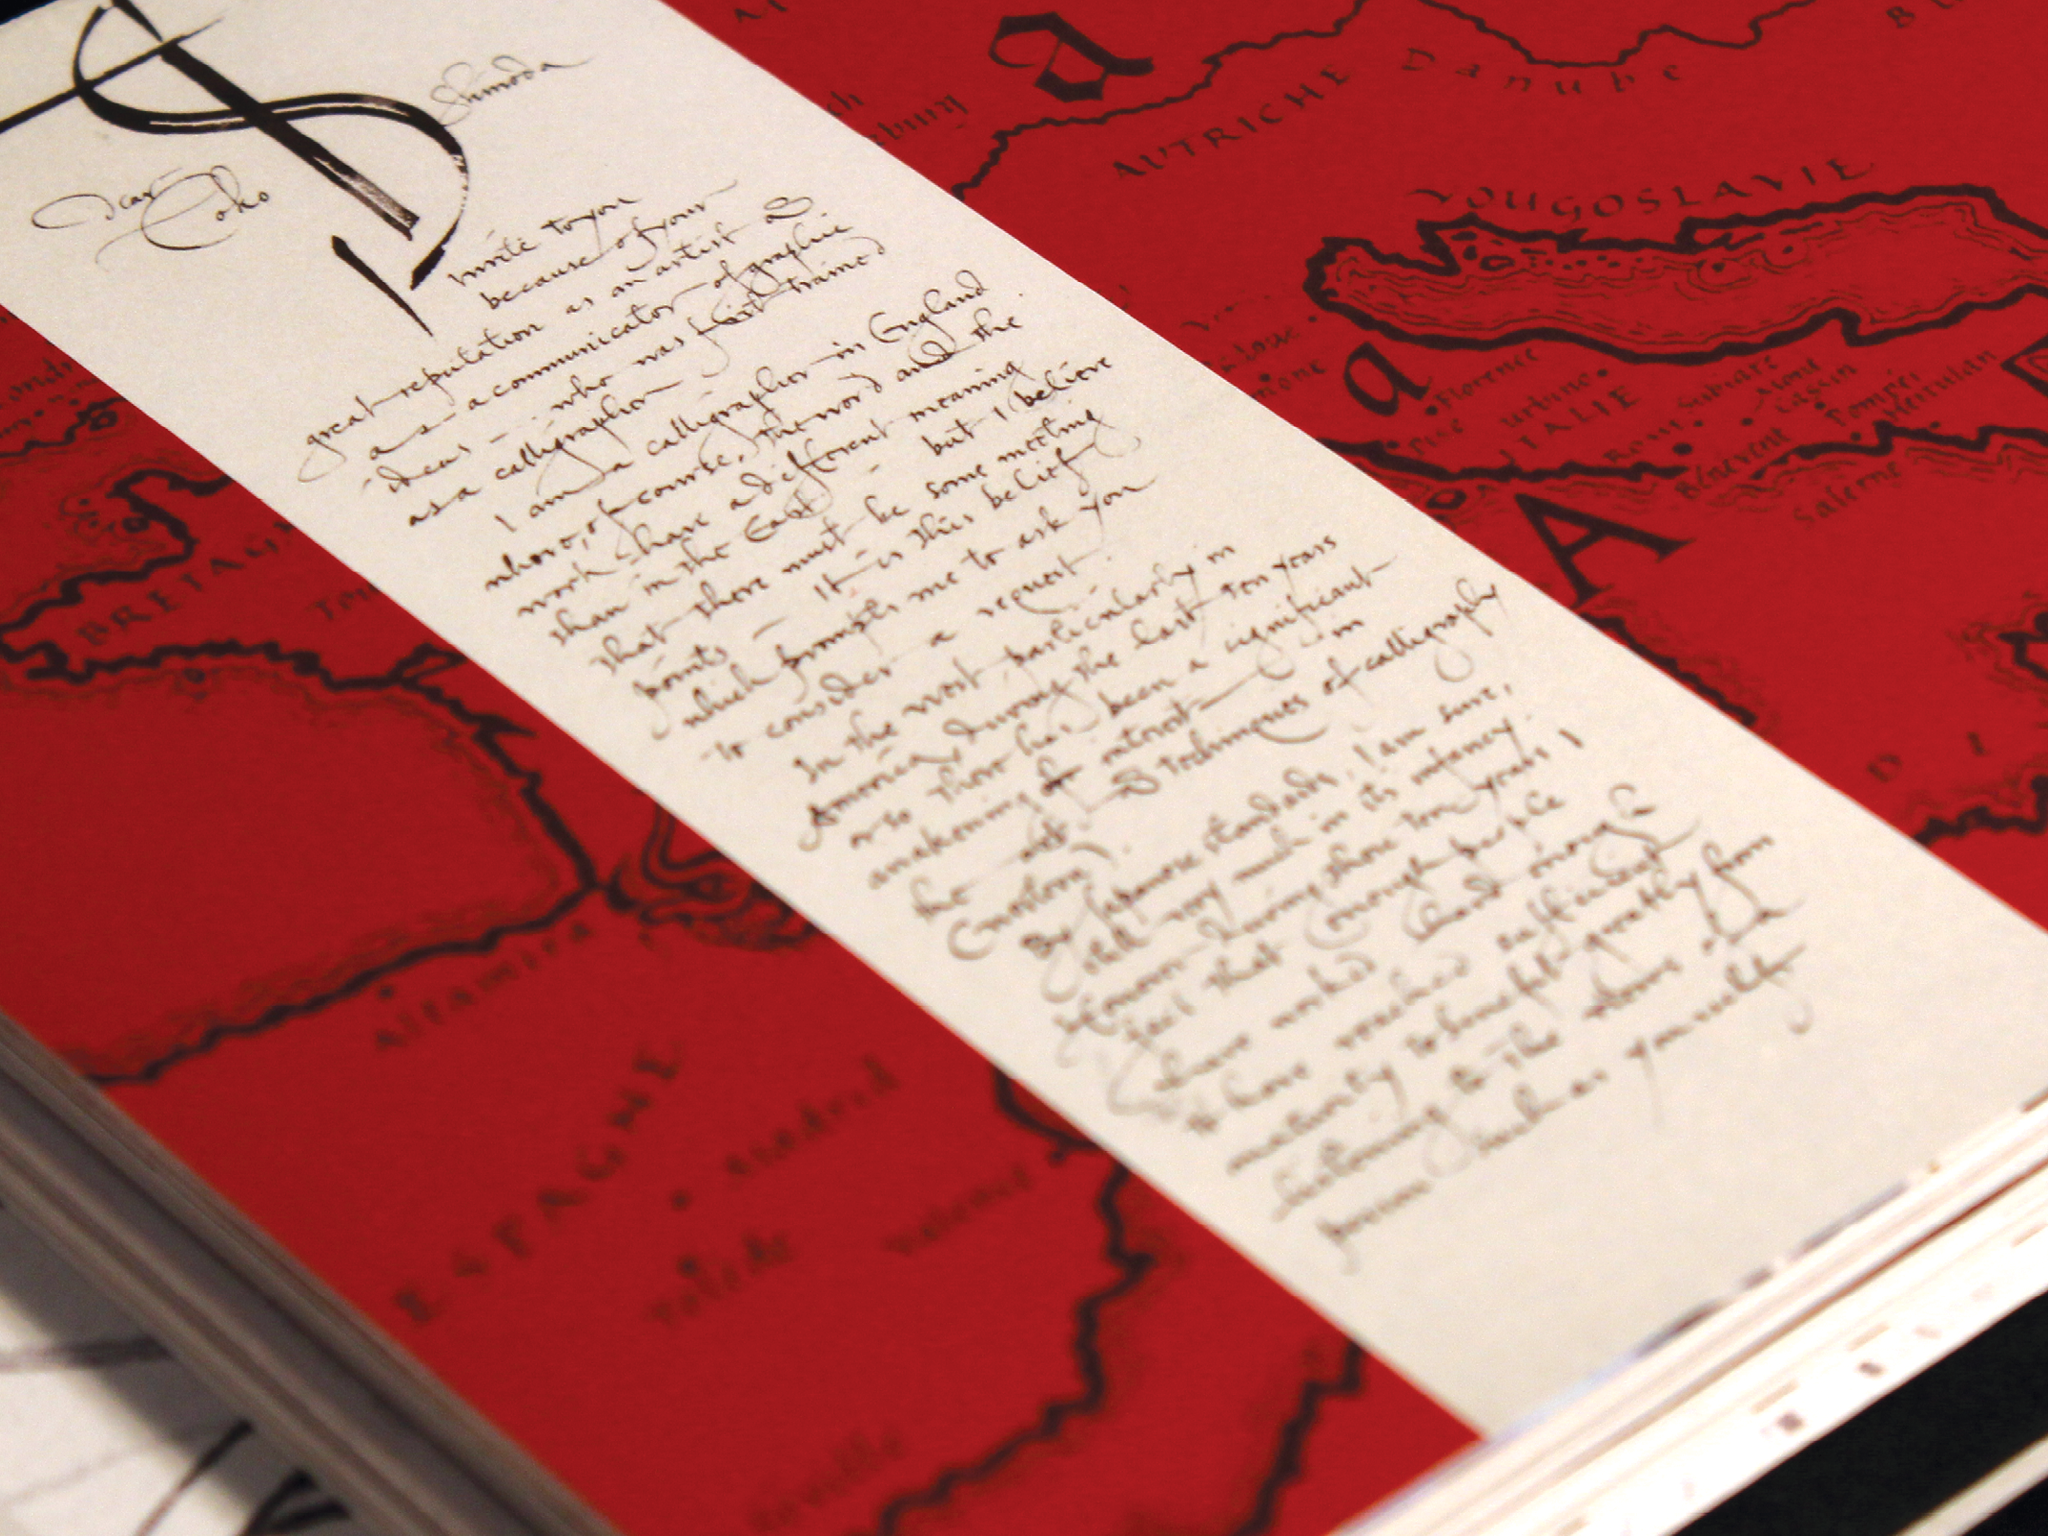 Shimoda
Dear Coho
I write to you
because of your
great reputation as an artist &
as a communicator of graphic
ideas who was first trained
as a calligrapher
I am a calligrapher in England
where, of course, the word and the
work have a different meaning
than in the East but I believe
that there must be some meeting
points It is this belief
which prompts me to ask you
to consider a request.
In the West, particularly in
America, during the last ten years
or so there has been a significant
awakening of interest in
the art & techniques of calligraphy
By Japanese standards, I am sure,
still very much in its infancy.
However during those ten years I
feel that enough people
have worked hard enough
to have reached sufficient
maturity to benefit greatly from
listening to the views of a
person such as yourself
a
AUTRICHE
Danube
YOUGOSLAVIE
a
Florence
Pise Urbino
ITALIE
Rome Subiaco
Cassin
Bénévent Pompei
Herculan
Salerne
A
BRETAGN
Altamira
ESPAGNE
Madrid
Tolède
Valence
Séville